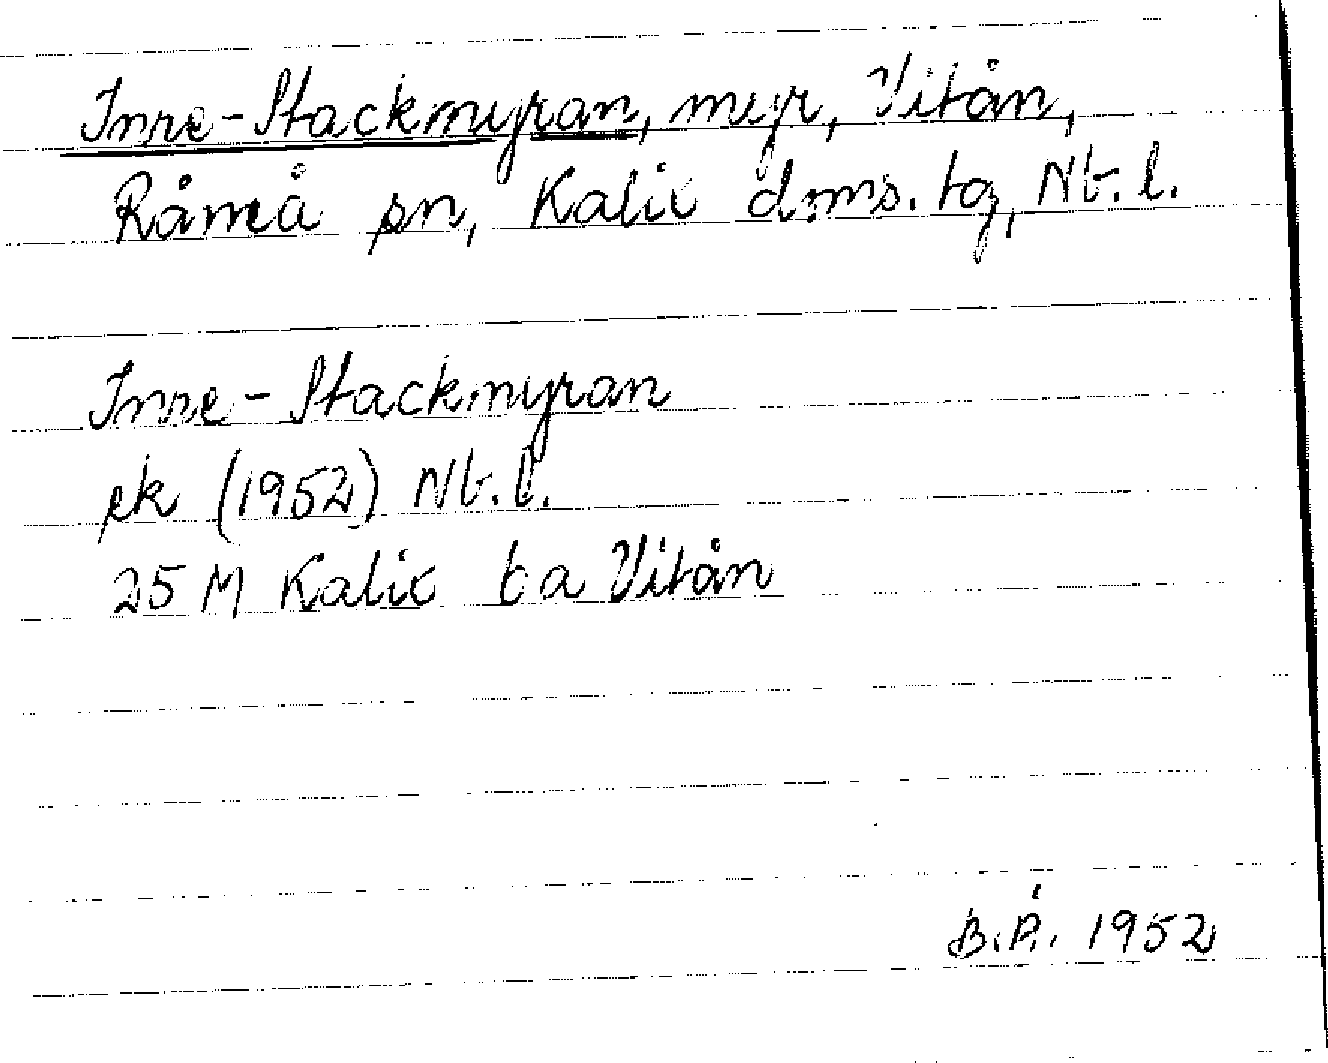 Inre-Stackmyran, myr, Vitån,
Råneå sn, Kalix doms. tg, Nb. l.
Inre-Stackmyran
ek (1952) Nb. l.
25 M Kalix ba Vitån
B.Å. 1952